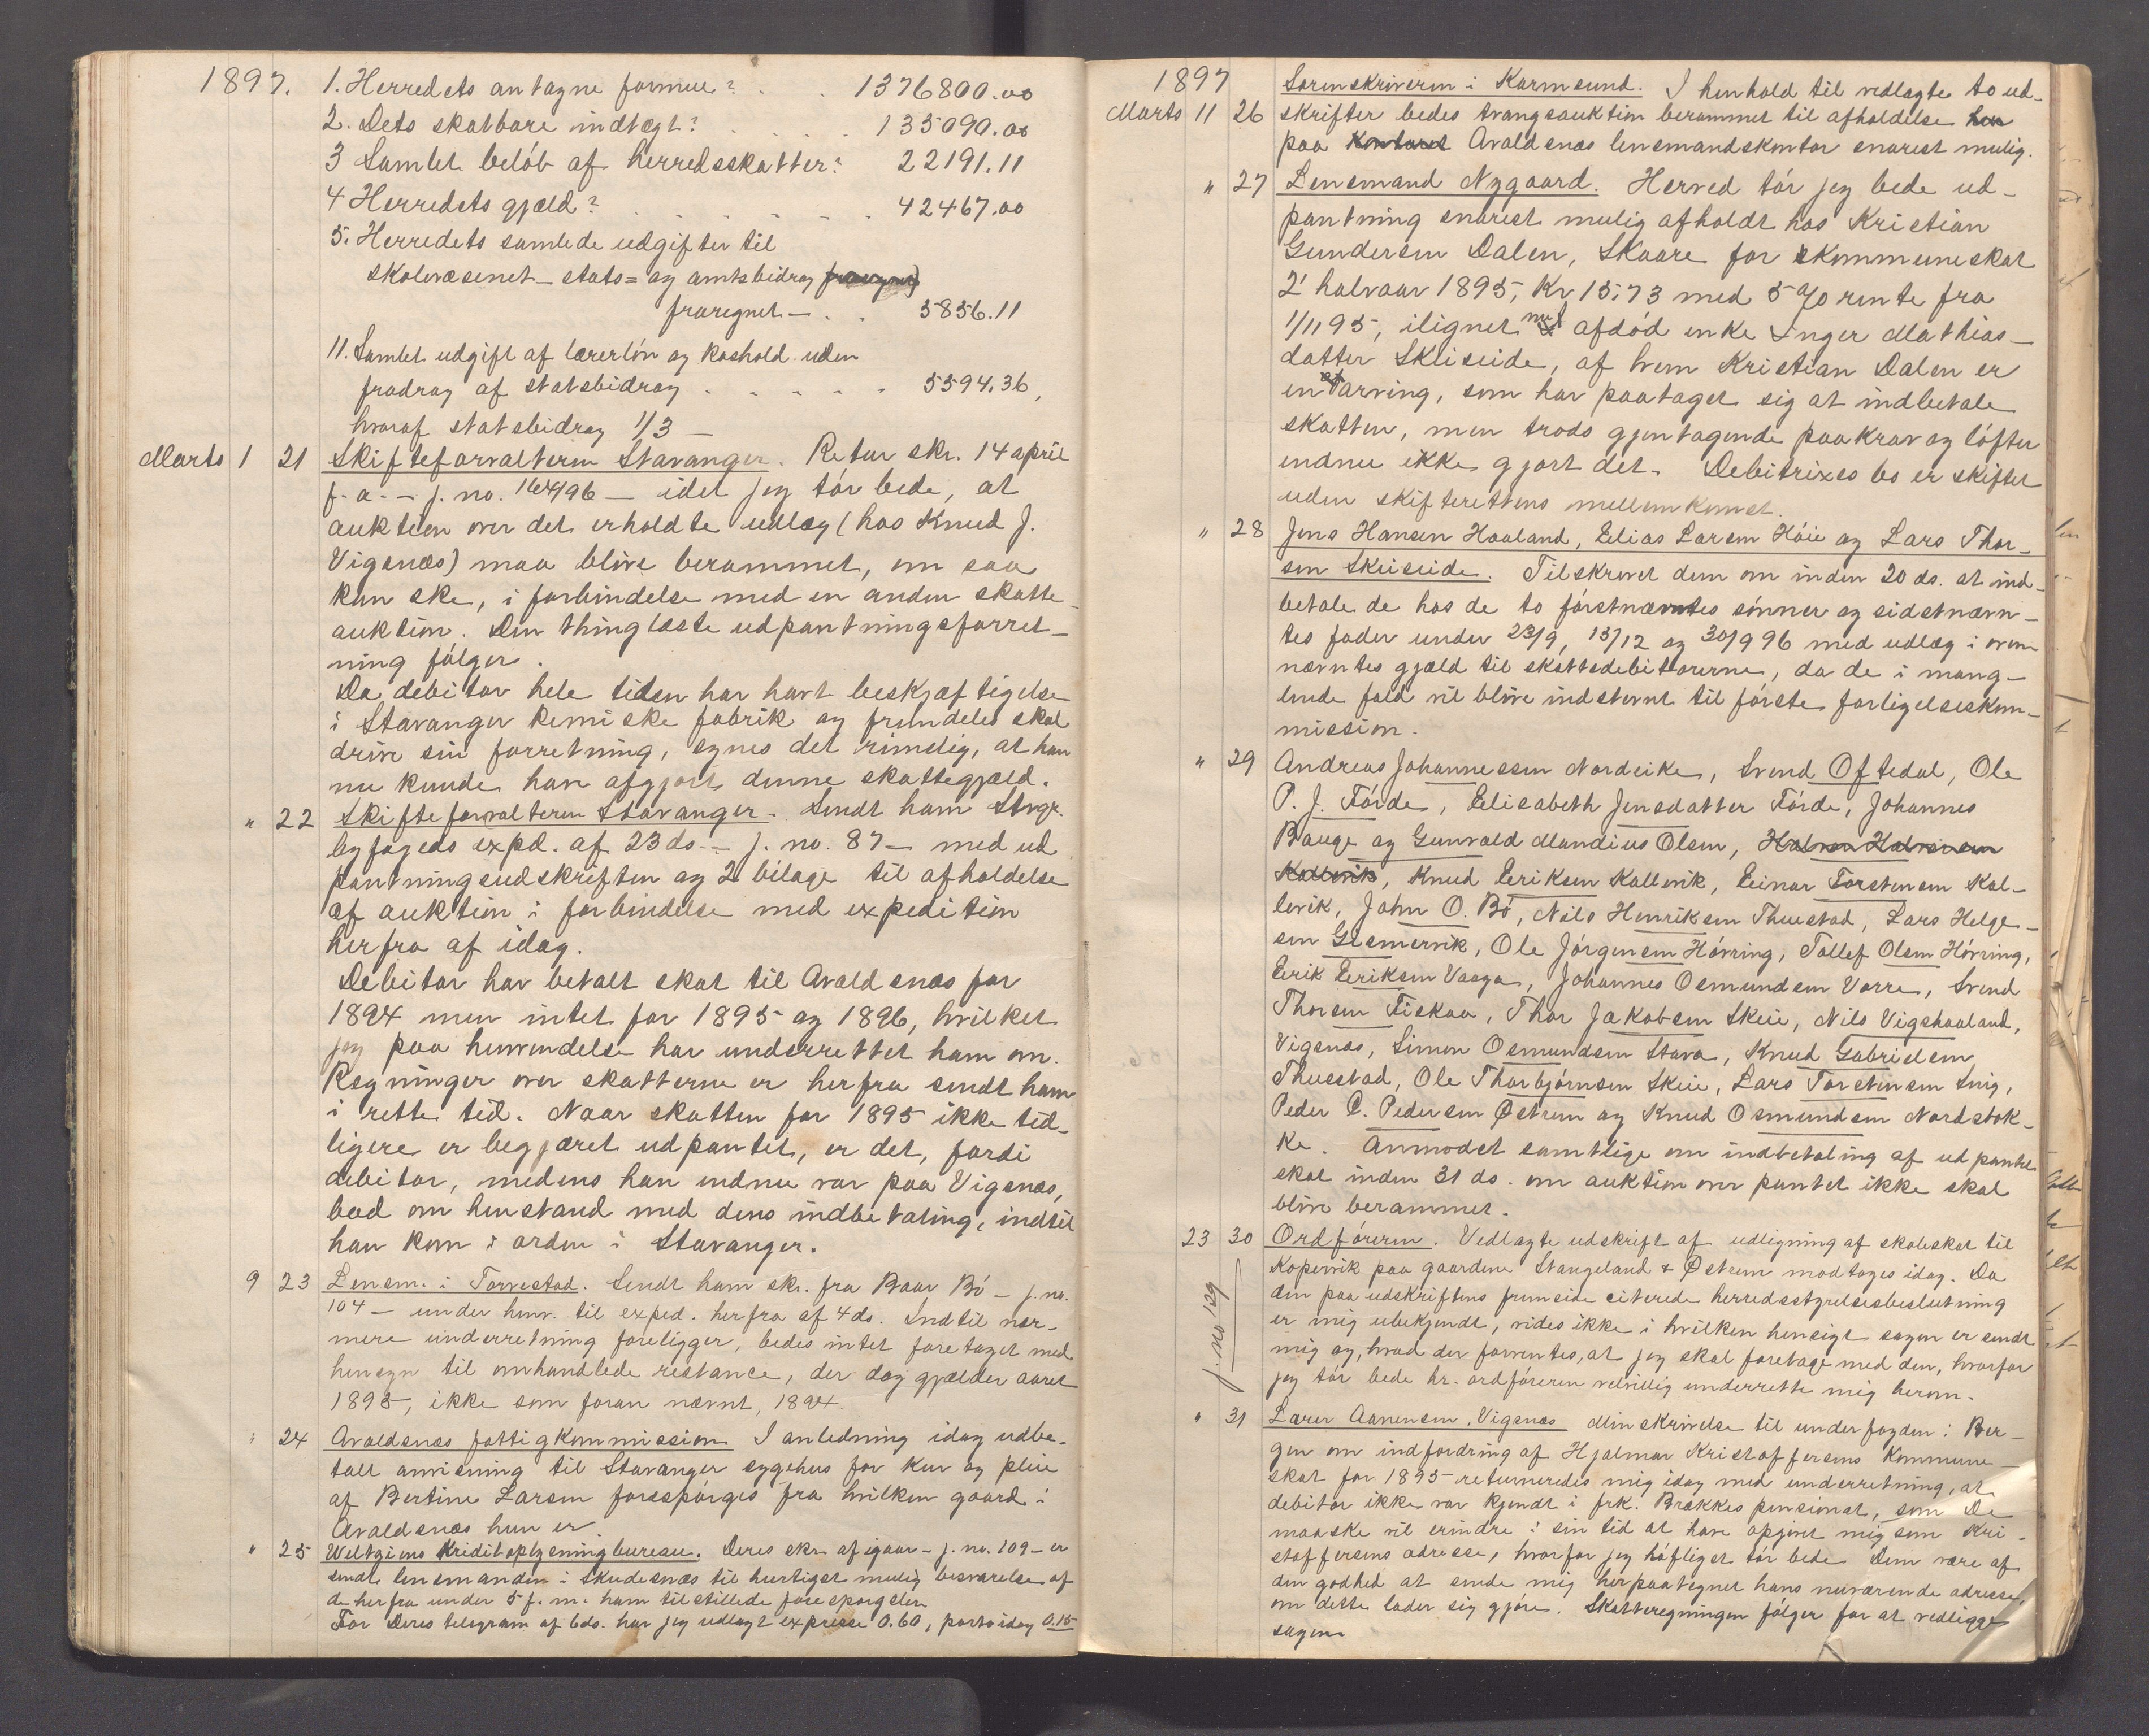 1897. 1. Herredets antagne formue? . . 1376800.00
2. Dets skatbare indtægt? . . . . 135090.00
3 Samlet beløb af herredsskatter? 22191.11
4 Herredets gjæld? . . . . . . 42467.00
5. Herredets samlede udgifter til
skolevæsenet – stats= og amtsbidrag
fraregnet – . . 5856.11
11. Samlet udgift af lærerløn og koshold uden
fradrag af statsbidrag . . . . . 5594.36,
hvoraf statsbidrag 1/3 –
Marts 1 21 Skifteforvalteren Stavanger. Retur skr. 14 april
f. a. – j. no. 164/96 – idet jeg tør bede, at
auktion over det erholdte udlæg (hos Knud J.
Vigsnæs) maa blive berammet, om saa
kan ske, i forbindelse med en anden skatte-
auktion. Den thinglæste udpantningsforret-
ning følger.
Da debitor hele tiden har havt beskjæftigelse
i Stavanger kemiske fabrik og fremdeles skal
drive sin forretning, synes det rimelig, at han
nu kunde have afgjort denne skattegjæld.
" 22 Skifteforvalteren Stavanger. Sendt ham Stvgr.
byfogeds expd. af 23 ds. – j. no. 87 – med ud
pantningsudskriften og 2 bilage til afholdelse
af auktion i forbindelse med expedition
herfra af idag.
Debitor har betalt skat til Avaldsnæs for
1894 men intet for 1895 og 1896, hvilket
jeg paa henvendelse har underrettet ham om.
Regninger over skatterne er herfra sendt ham
i rette tid. Naar skatten for 1895 ikke tid-
ligere er begjæret udpantet, er det, fordi
debitor, medens han endnu var paa Vigsnæs,
bad om henstand med dens indbetaling, indtil
han kom i orden i Stavanger.
9 23 Lensm. i Torvestad. Sendt ham skr. fra Baar Bø – j. no.
104 – under henv. til exped. herfra af 4 ds. Indtil nær-
mere underretning foreligger, bedes intet foretaget med
hensyn til omhandlede restance, der dog gjælder aaret
1895, ikke som foran nævnt, 1894.
" 24 Avaldsnæs fattigkommission I anledning idag udbe-
talt anvisning til Stavanger sygehus for kur og pleie
af Bertine Larsen forespørges fra hvilken gaard i
Avaldsnæs hun er
" 25 Weltziens Kreditoplysningbureau. Deres skr. af igaar – j. no. 109 – er
sendt lensmanden i Skudesnæs til hurtigst mulig besvarelse af
de herfra under 5 f. m. ham tilstillede forespørgsler.
For Deres telegram af 6 ds. har jeg udlagt expresse 0.60, porto idag 0.15
1897 Sorenskriveren i Karmsund. I henhold til vedlagte to ud-
Marts 11 26 skrifter bedes tvangsauktion berammet til afholdelse her
paa Kontoret Avaldsnæs lensmandskontor snarest mulig.
" 27 Lensmand Nygaard. Herved tør jeg bede ud-
pantning snarest mulig afholdt hos Kristian
Gundersen Dalen, Skaare for kommuneskat
2' halvaar 1895, Kr 15,73 med 5 % rente fra
1/11 95, ilignet nu afdød enke Inger Mathias-
datter Skeiseide, af hvem Kristian Dalen er
en arving, som har paataget sig at indbetale
skatten, men trods gjentagende paakrav og løfter
endnu ikke gjort det. Debitrixes bo er skiftet
uden skifterettens mellemkomst.
" 28 Jens Hansen Haaland, Elias Larsen Høie og Lars Thor-
sen Skeiseide. Tilskrevet dem om inden 20 ds. at ind-
betale de hos de to førstnævntes sønner og sidstnævn-
tes fader under 23/9, 15/12 og 30/9 96 med udlæg i oven
nævntes gjæld til skattedebitorerne, da de i mang-
lende fald vil blive indstevnt til første forligelseskom-
mission.
" 29 Andreas Johannessen Nordeike, Svend Oftedal, Ole
P. J. Førde, Elisabeth Jensdatter Førde, Johannes
Bauge og Gunvald Mandius Olsen, Halvor Halvorsen
Kallevik, Knud Eriksen Kallevik, Einar Torstensen Kal-
levik, John O. Bø, Nils Henriksen Thuestad, Lars Helge-
sen Geismervik, Ole Jørgensen Høvring, Tollef Olsen Høvring,
Eerik Eeriksen Vaaga, Johannes Osmundsen Vorre, Svend
Thorsen Fiskaa, Thor Jakobsen Skeie, Nils Vigshaaland,
Vigsnæs, Simon Osmundsen Stava, Knud Gabrielsen
Thuestad, Ole Thorbjørnsen Skeie, Lars Torstensen Snig,
Peder C. Pedersen Østrem og Knud Osmundsen Nordstok-
ke. Anmodet samtlige om indbetaling af udpantet
skat inden 31 ds. om auktion over pantet ikke skal
blive berammet.
23 30 Ordføreren. Vedlagte udskrift af udligning af skoleskat til
Kopervik paa gaardene Stangeland & Østrem modtoges idag. Da
den paa udskriftens fremside citerede herredsstyrelsesbeslutning
er mig ubekjendt, vides ikke i hvilken hensigt sagen er sendt
mig og, hvad der forventes, at jeg skal foretage med den, hvorfor
jeg tør bede hr. ordføreren velvillig underrette mig herom.
j. no 129
" 31 Lærer Aanensen, Vigsnæs Min skrivelse til underfogden i Ber-
gen om indfordring af Hjalmar Kristoffersens Kommune-
skat for 1895 returneredes mig idag med underretning, at
debitor ikke var kjendt i frk. Brækkes pensionat, som De
maaske vil erindre i sin tid at have opgivet mig som Kri-
stoffersens adresse, hvorfor jeg høfligst tør bede Dem være af
den godhed at sende mig herpaategnet hans nuværende adresse,
om dette lader sig gjøre. Skatteregningen følger for at vedligge
sagen